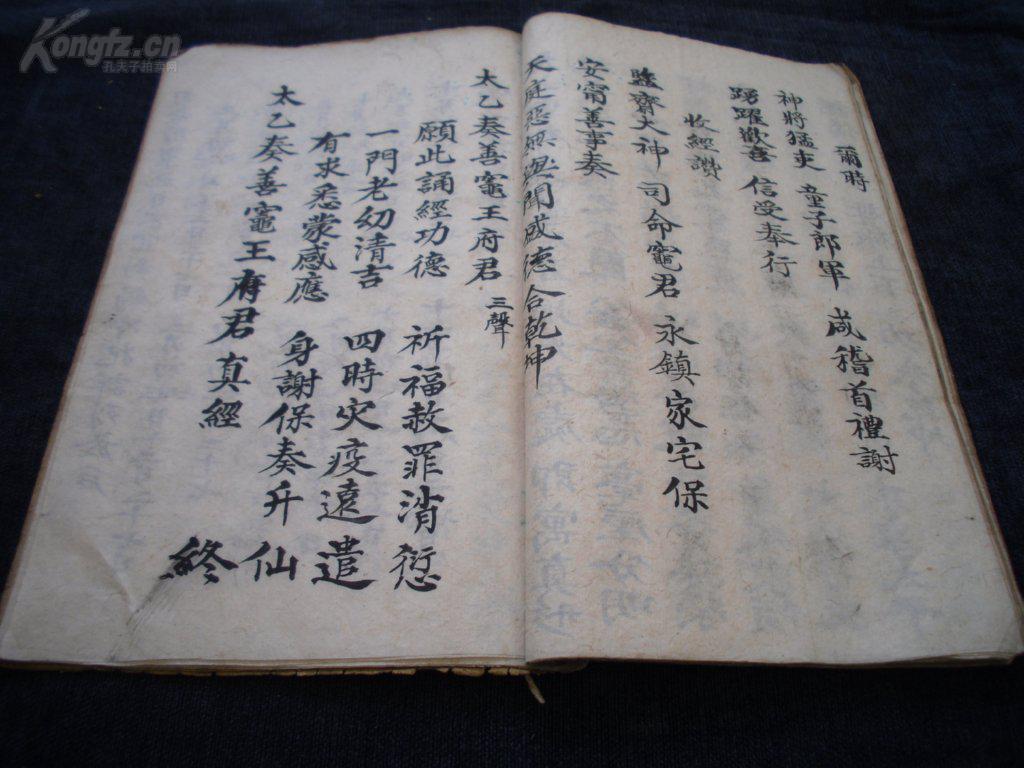 Kongfz.cn
孔夫子拍卖网
爾時
神將猛吏 童子郎軍 咸稽首禮謝
踴躍歡喜 信受奉行
收經讚
監齋大神 司命竈君 永鎮家宅保
安甯善事奏
天庭惡無與聞咸德合乾坤
太乙奏善竈王府君 三聲
願此誦經功德 祈福赦罪消愆
一門老幼清吉 四時灾疫遠遣
有求悉蒙感應 身謝保奏升仙
太乙奏善竈王府君真經 終